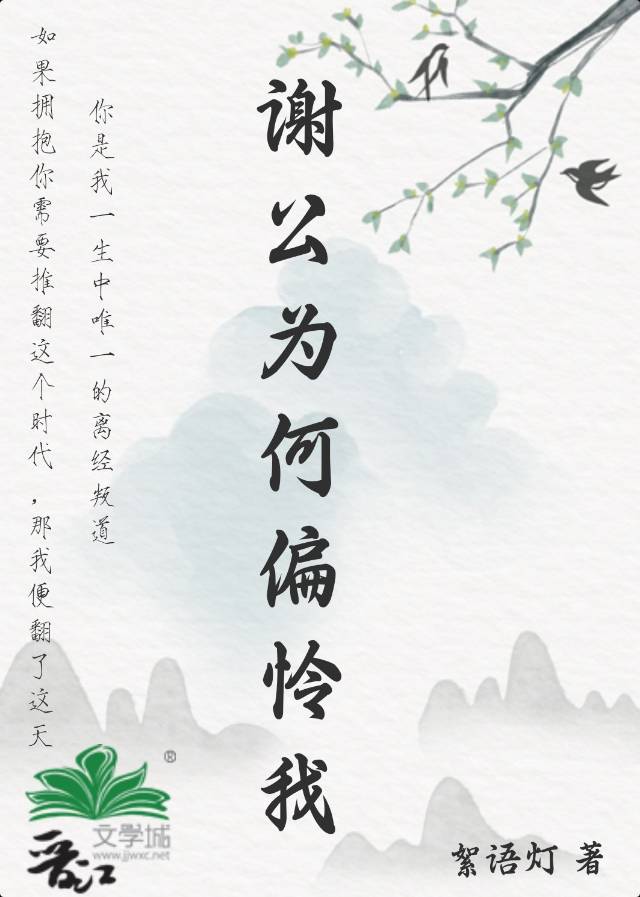 谢公为何偏怜我
你是我一生中唯一的离经叛道
如果拥抱你需要推翻这个时代，那我便翻了这天
絮语灯 著
晋江
文学城
www.jjwxc.net
®